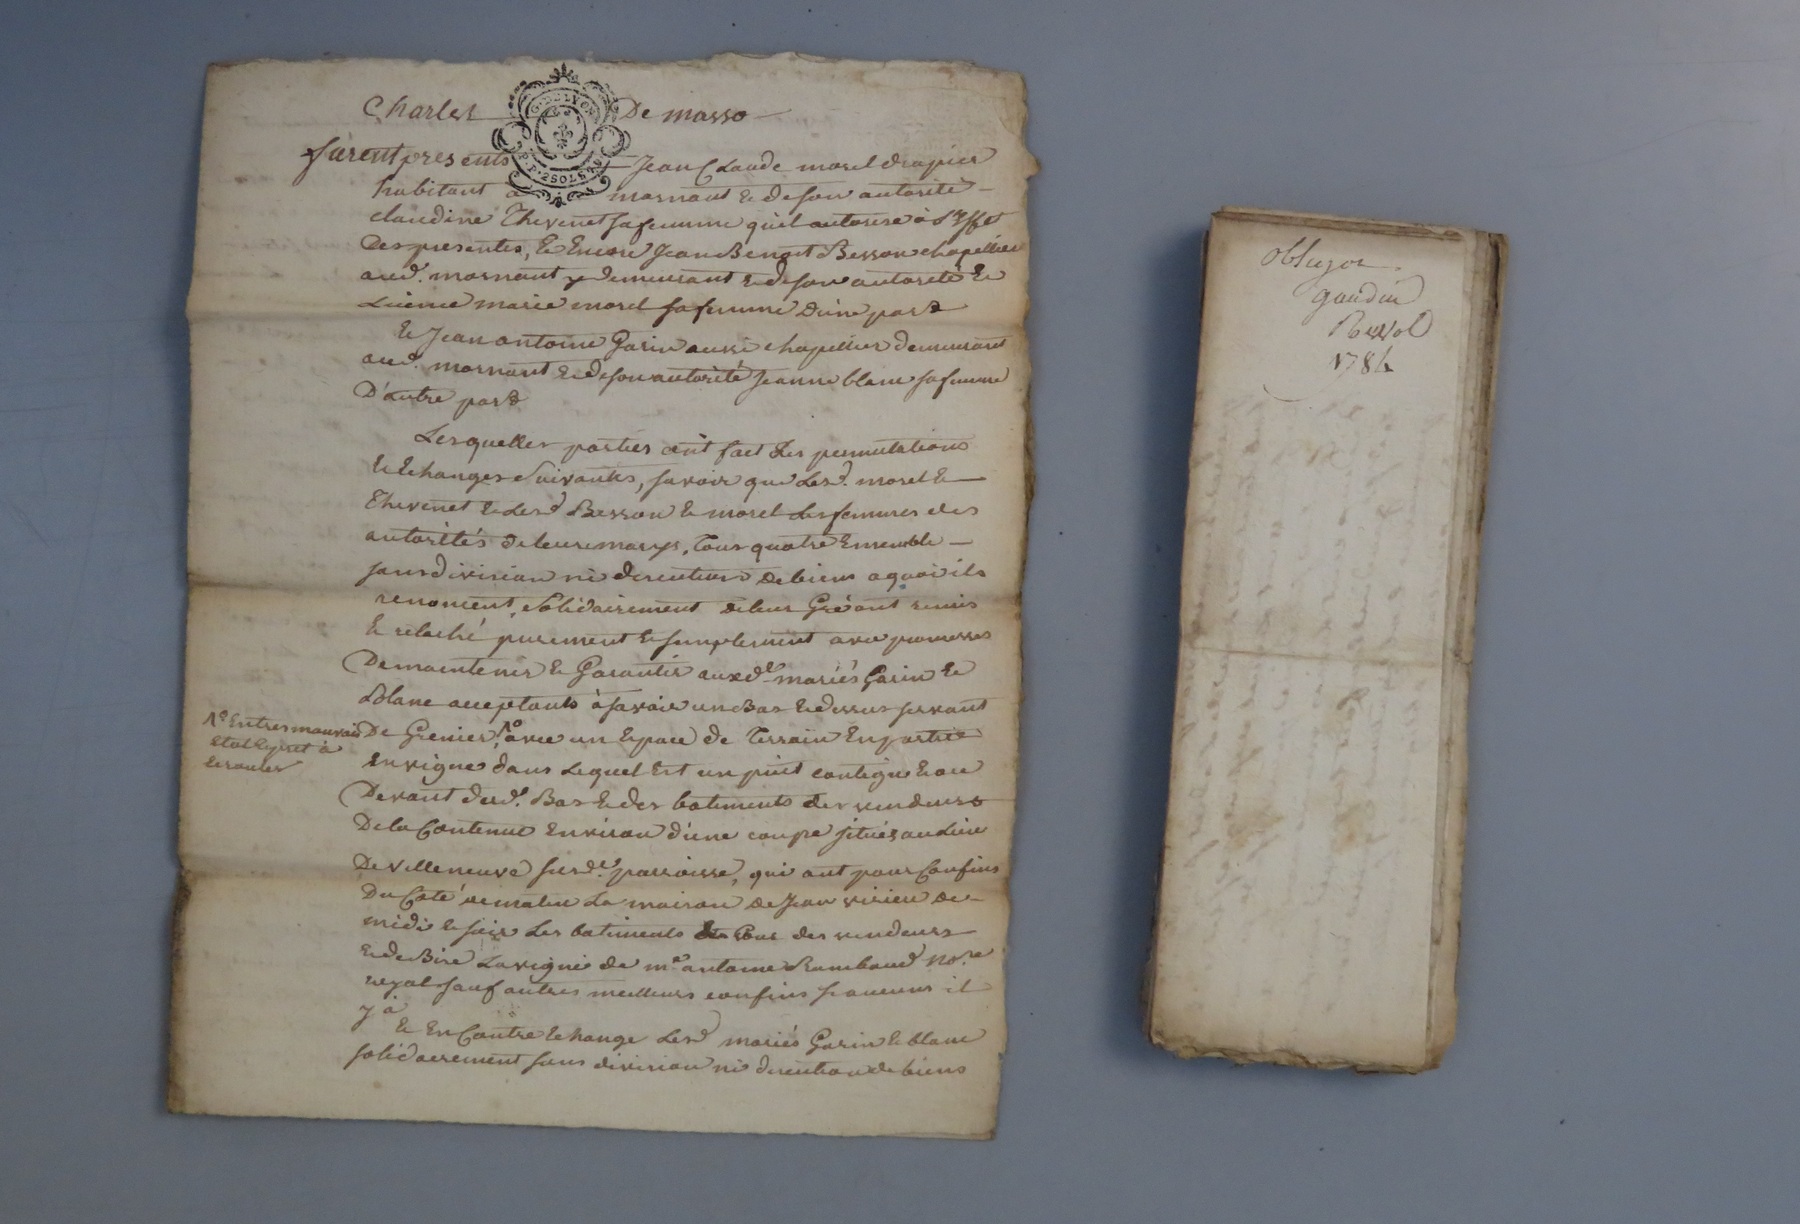 Charles De masso
G. DE LYON
P.P. 2 SOLS
furent presents Jean Claude morel drapier
habitant a mornant & de son autorité
claudine Thevenet sa femme qu'il autorise à l'effet
Des presentes, & Encore Jean Benoit Besson chapellier
aud. mornant y demeurant & de son autorité &
Licence marie morel sa femme d'une part
& Jean antoine Garin aussi chapellier demeurant
aud. mornant & de son autorité Jeanne blanc sa femme
D'autre part
Lesquelles parties ont fait Les permutations
& Echanges suivantes, savoir que Lesd. morel &
Thevenet & Lesd Besson & morel Les femmes des
autorités de leurs marys, Tous quatre Ensemble
sans division ni discution de biens a quoi ils
renoncent, solidairement de leur Gré ont remis
& relaché purement & simplement avec promesses
De maintenir & Garantir auxd. mariés Garin &
Blanc acceptants à savoir un Bas & dessus servant
De Grenier, avec un Espace de Terrain En partie
En tres mauvais
Etat & pret à
Ecrouler
En vigne dans Lequel Est un puit contigue & au
Devant dud. Bas & des batiments des vendeurs
De la Contenue Environ d'une coupe situés au Lieu
De villeneuve susd. parroisse, qui ont pour Confins
Du Coté de matin La maison de Jean de
midi & soir Les batiments des vendeurs
& de Bize La vigne de me antoine Rambaud No.re
royal sauf autres meilleurs confins si aucuns il
y a
& En Contre Echange Lesd mariés Garin & blanc
solidairement sans division ni discution de biens
obligon
gaudin
Revol
1784